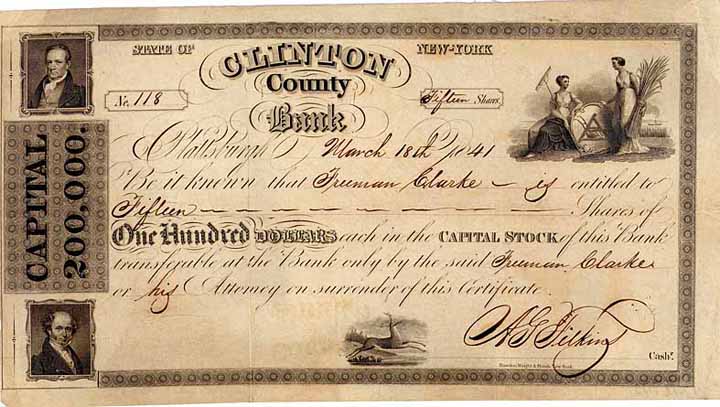 STATE OF CLINTON NEW-YORK
County
No. 118 Fifteen Shares
Bank
CAPITAL
200,000.
Plattsburgh March 18th 1841
Be it known that Freeman Clarke is entitled to
Fifteen Shares of
One Hundred DOLLARS each in the CAPITAL STOCK of this Bank
transferable at the Bank only by the said Freeman Clarke
or his Attorney on surrender of this Certificate.
Cashr.